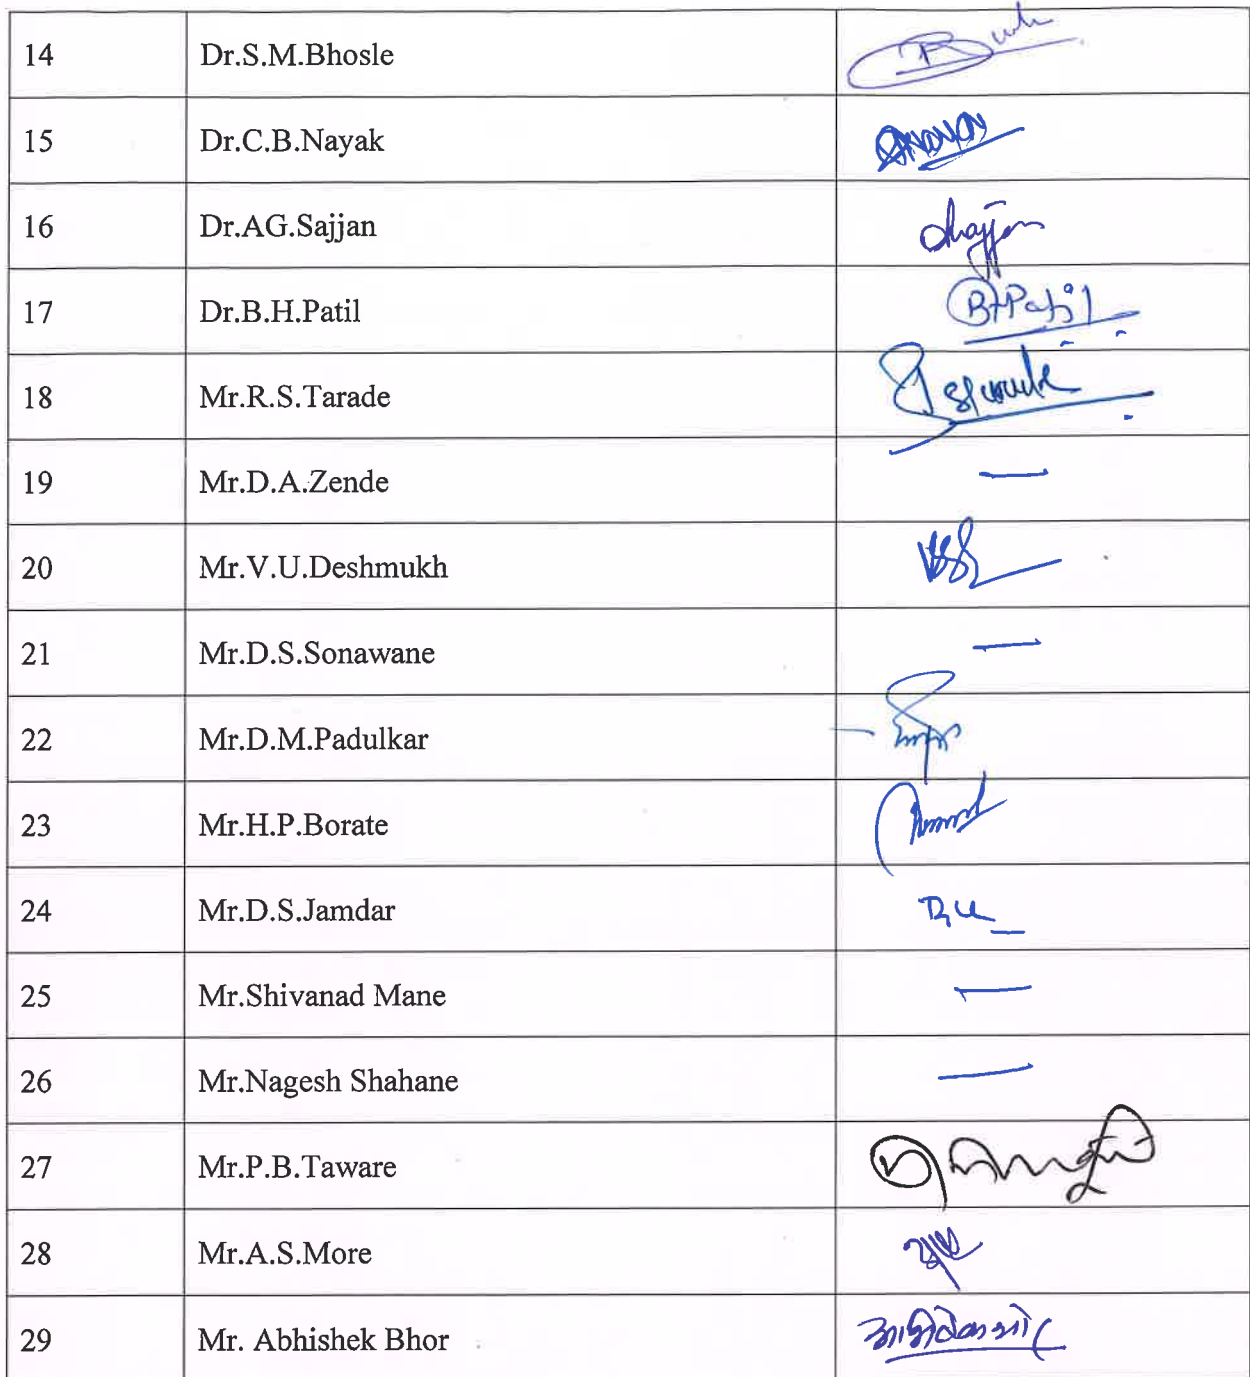 14 Dr.S.M.Bhosle
15 Dr.C.B.Nayak
16 Dr.AG.Sajjan
17 Dr.B.H.Patil BHPatil
18 Mr.R.S.Tarade
19 Mr.D.A.Zende —
20 Mr.V.U.Deshmukh
21 Mr.D.S.Sonawane —
22 Mr.D.M.Padulkar
23 Mr.H.P.Borate
24 Mr.D.S.Jamdar
25 Mr.Shivanad Mane —
26 Mr.Nagesh Shahane —
27 Mr.P.B.Taware
28 Mr.A.S.More
29 Mr. Abhishek Bhor